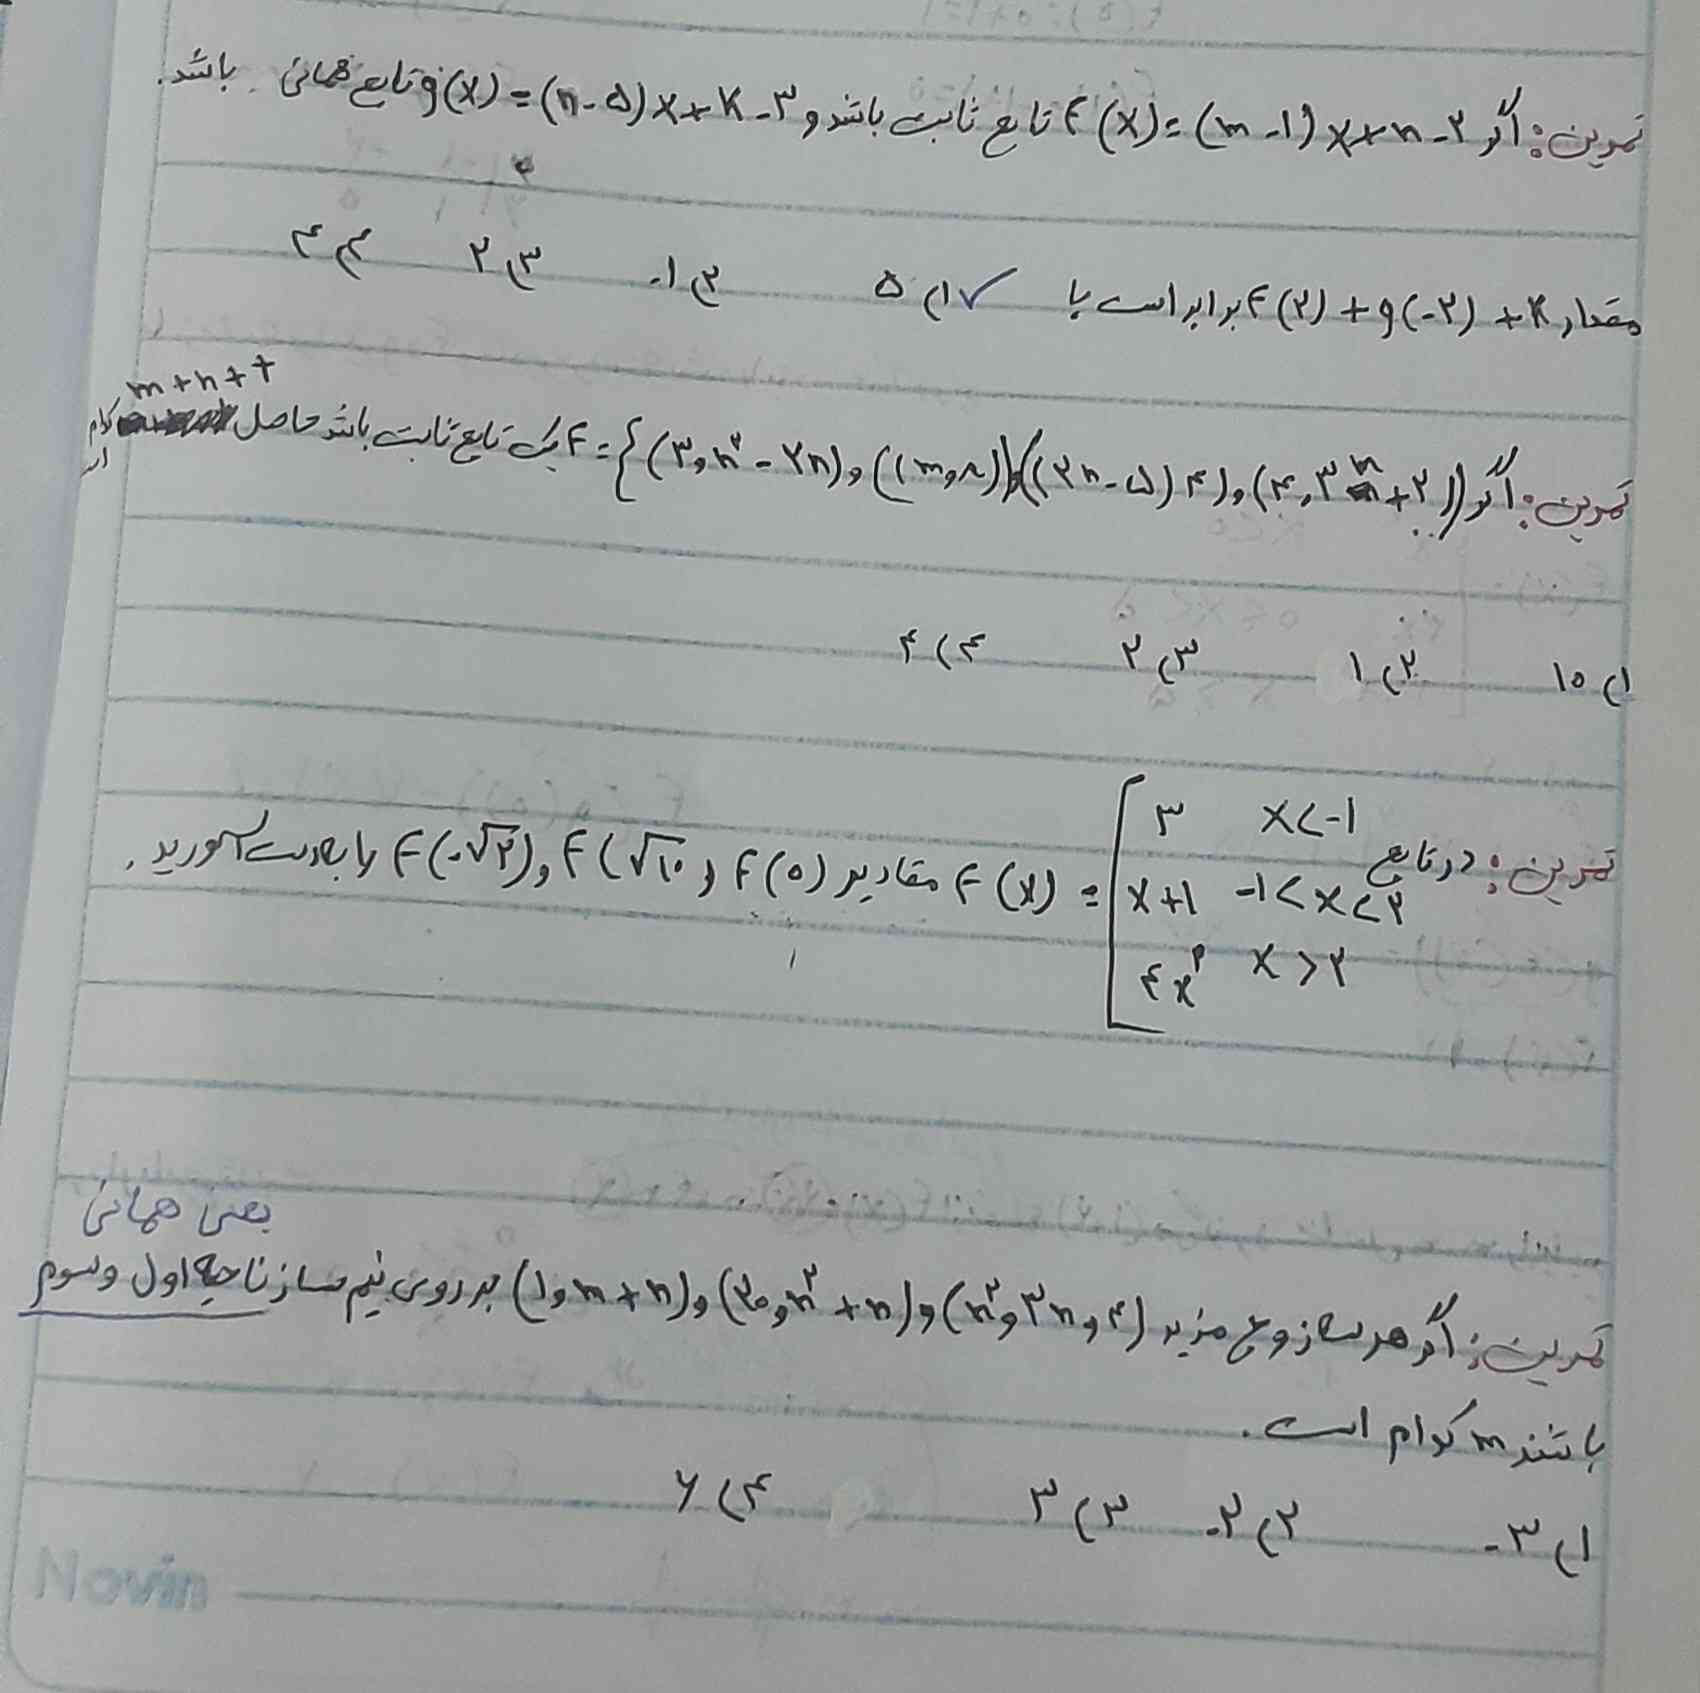 تمرین: اگر f(x)=(m-۱)x+n-۲ تابع ثابت باشد و g(x)=(n-۵)x+k-۳ تابع همانی باشد.
مقدار f(۲)+g(-۲)+k برابر است با ✓۱) ۵ ۲) -۱ ۳) ۲ ۴) ۴
m+n+t
تمرین: اگر f={(۳,n²-۲n),(m,۸),(۲n-۵,۴),(۴,۳m+۲)} یک تابع ثابت باشد حاصل کدام
۱) ۱۰ ۲) ۱ ۳) ۲ ۴) ۴
تمرین: در تابع f(x)=[۳ x<-۱
x+۱ -۱<x<۲
۴x² x>۲
مقادیر f(۰) و f(√۱۰) و f(-√۲) را بدست آورید.
یعنی همانی
تمرین: اگر هر سه زوج مرتب (n²,۳n,۴) و (۲۰,n²+n) و (۱,m+n) بر روی نیم ساز ناحیه اول و سوم
باشند m کدام است.
۱) -۳ ۲) -۲ ۳) ۳ ۴) ۶
Novin